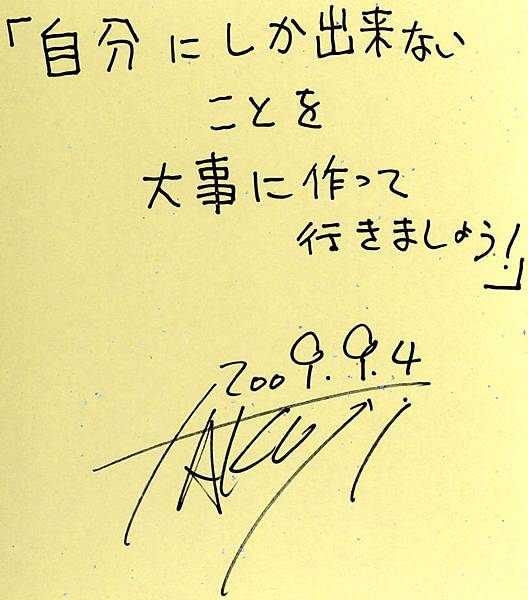 「自分にしか出来ない
ことを
大事に作って
行きましょう!」
2009.9.4
TAKUJI